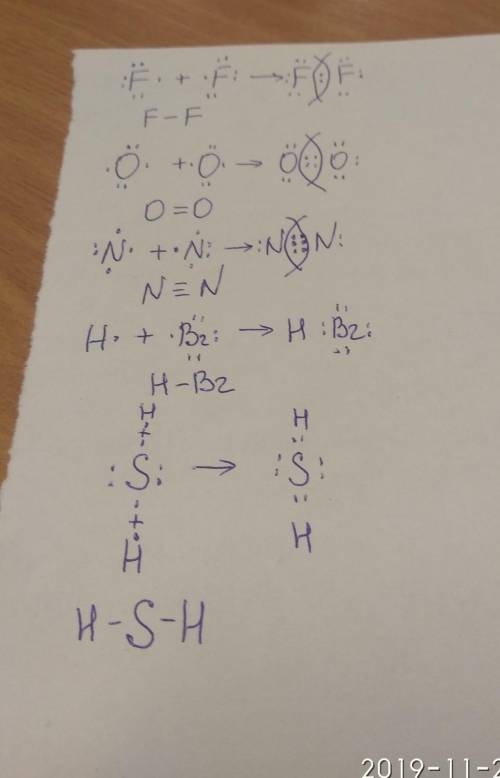 :F̈· + ·F̈: → :F̈ : F̈:
F – F
·Ö· + ·Ö· → Ö :: Ö:
O = O
:N· + ·N: → :N ⋮⋮ N:
N ≡ N
H· + ·Br: → H :Br:
H – Br
H H
+
:S: → :S:
+
H H
H – S – H
2019-11-2